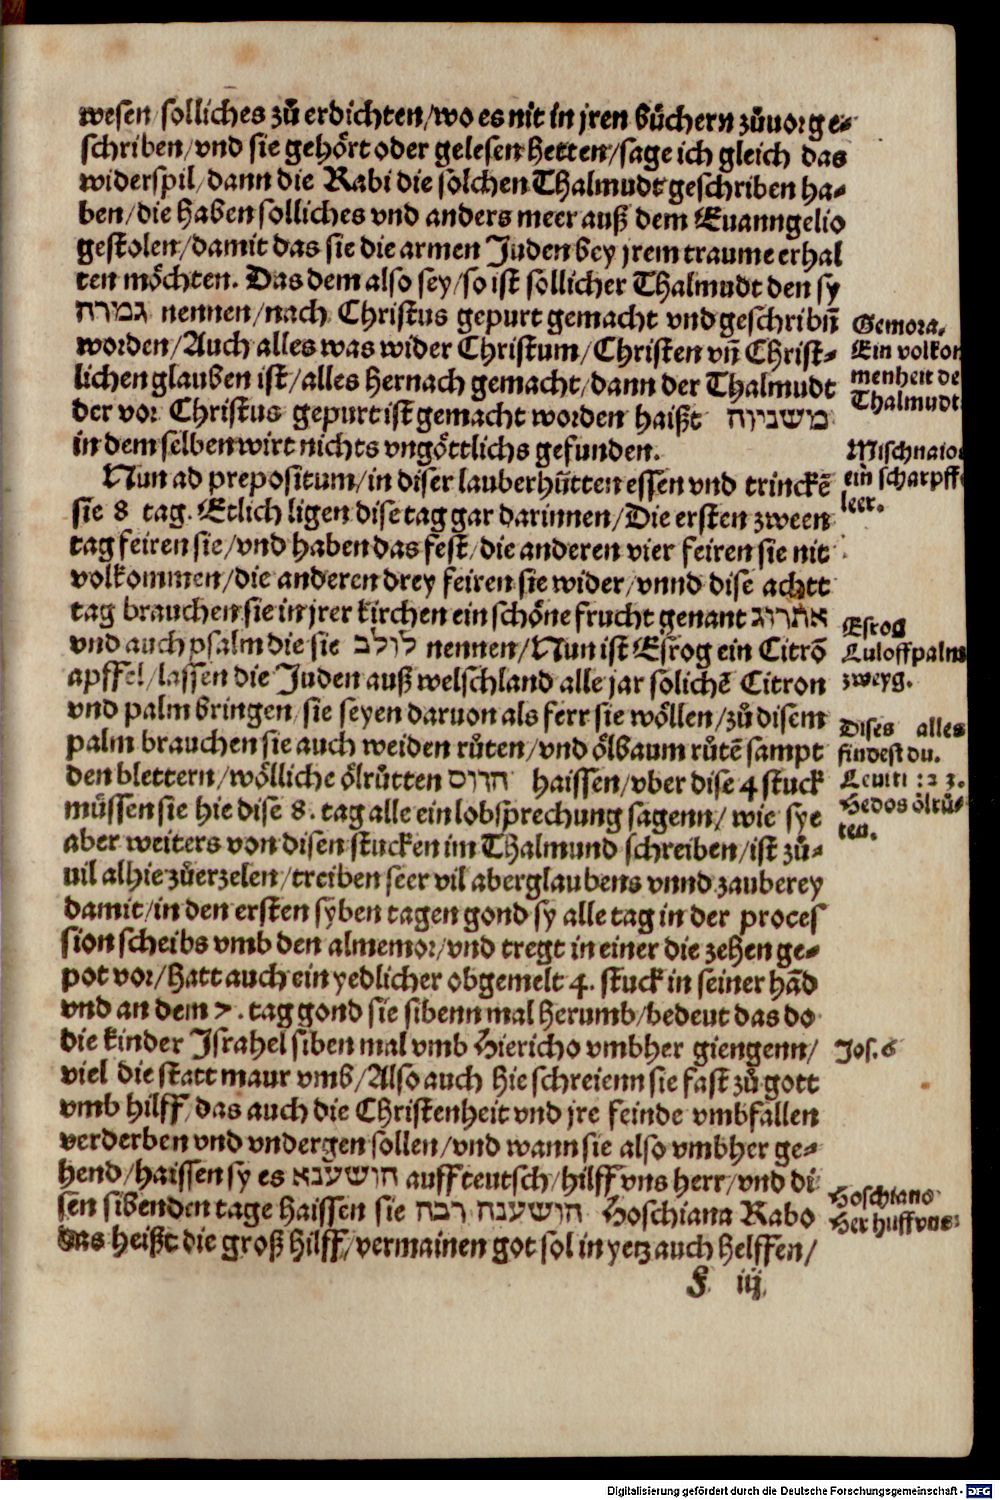 wesen/solliches zů erdichten/wo es nit in jren bůchern zůuor ge-
schriben/vnd sie gehört oder gelesen hetten/sage ich gleich das
widerspil/dann die Rabi die solchen Thalmudt geschriben ha-
ben/die haben solliches vnd anders meer auß dem Euanngelio
gestolen/damit das sie die armen Juden bey jrem traume erhal
ten möchten. Das dem also sey/so ist sollicher Thalmudt den sy
גמרה nennen/nach Christus gepurt gemacht vnd geschribñ
worden/Auch alles was wider Christum/Christen vñ Christ-
lichen glauben ist/alles hernach gemacht/dann der Thalmudt
der vor Christus gepurt ist gemacht worden haißt משניות
in dem selben wirt nichts vngöttlichs gefunden.
Gemora.
Ein volkom
menheit de
Thalmudt
Mischnaio
ein scharpff
leer.
Nun ad prepositum/in diser lauberhütten essen vnd trinckē
sie 8 tag. Etlich ligen dise tag gar darinnen/Die ersten zween
tag feiren sie/vnd haben das fest/die anderen vier feiren sie nit
volkommen/die anderen drey feiren sie wider/vnnd dise achtt
tag brauchen sie in jrer kirchen ein schöne frucht genant אתרוג
vnd auch psalm die sie לולב nennen/Nun ist Esrog ein Citrō
apffel/lassen die Juden auß welschland alle jar solichē Citron
vnd palm bringen/sie seyen daruon als ferr sie wöllen/zů disem
palm brauchen sie auch weiden růten/vnd ölbaum růtē sampt
den blettern/wölliche ölrůtten הדוס haissen/vber dise 4 stuck
müssen sie hie dise 8. tag alle ein lobsprechung sagenn/wie sye
aber weiters von disen stucken im Thalmund schreiben/ist zů-
uil alhie zůerzelen/treiben seer vil aberglaubens vnnd zauberey
damit/in den ersten syben tagen gond sy alle tag in der proces
sion scheibs vmb den almemor/vnd tregt in einer die zehen ge-
pot vor/hatt auch ein yedlicher obgemelt 4. stuck in seiner hād
vnd an dem 7. tag gond sie sibenn mal herumb/bedeut das do
die kinder Israhel siben mal vmb Hiericho vmbher giengenn/
viel die statt maur vmb/Also auch hie schreienn sie fast zů gott
vmb hilff/das auch die Christenheit vnd jre feinde vmbfallen
verderben vnd vndergen sollen/vnd wann sie also vmbher ge-
hend/haissen sy es הושענא auff teutsch/hilff vns herr/vnd di
sen sibenden tage haissen sie הושענה רבה Hoschiana Rabo
das heißt die groß hilff/vermainen got sol in yetz auch helffen/
Esrog
Luloff palm
zweyg.
Dises alles
findest du.
Leuiti: 23.
Hedos ölrů-
ten.
Jos. 6
Hoschiano
Her hilff vns:
F iij.
Digitalisierung gefördert durch die Deutsche Forschungsgemeinschaft - DFG